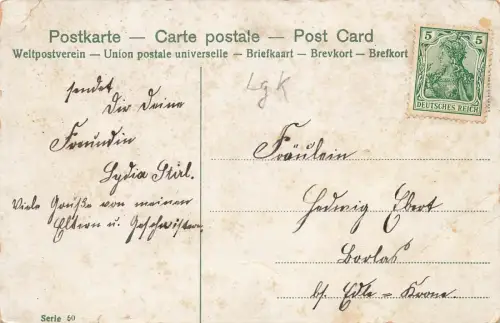 Postkarte — Carte postale — Post Card
Weltpostverein — Union postale universelle — Briefkaart — Brevkort — Brefkort
5 5
DEUTSCHES REICH
LgK
sendet
Dir Deine
Freundin
Lydia Stirl.
Viele Grüße von meinen
Eltern u. Geschwister.
Fräulein
Hedwig Ebert
Borlas
bf. Edle – Krone.
Serie 50